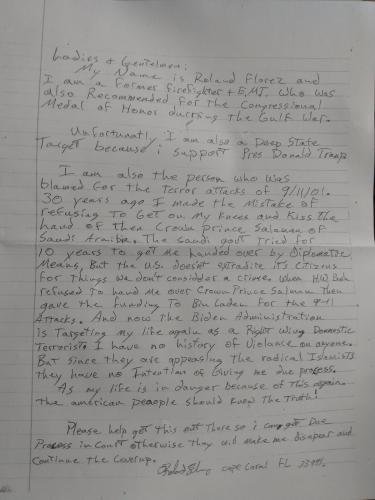 Ladies & Gentelmen:
My Name is Roland Florez and
I am a Former firefighter + EMT. Who was
also Recommended for the Congressional
Medal of Honor durring the Gulf War.
Unfortunatly I am also a Deep State
Target because i support Pres Donald Trump
I am also the person who was
blamed for the terror attacks of 9/11/01.
30 years ago I made the Mistake of
refusing To Get on My Knees and Kiss the
hand of then Crown prince Salaman of
Saudi Arabia. The saudi govt Tried for
10 years to get me handed over by Diplomatic
Means, But the U.S. doesnt extradite its Citizens
for Things we don't considder a crime. When H.W. Bush
refused To hand me over Crown Prince Salman Then
gave the funding To Bin Laden for the 9-11
Attacks. And now the Biden Administration
is Targeting my life again as a Right Wing Domestic
Terrorist. I have no history of Violance on anyone.
But since they are appeasing the radical Islamists
they have no Intention of Giving me due process.
As my life is in danger because of This again
the american peaople should know The Truth!
Please help get this out There so i can get Due
Process in Court otherwise they will make me disapear and
Continue the Coverup.
Cape Coral FL